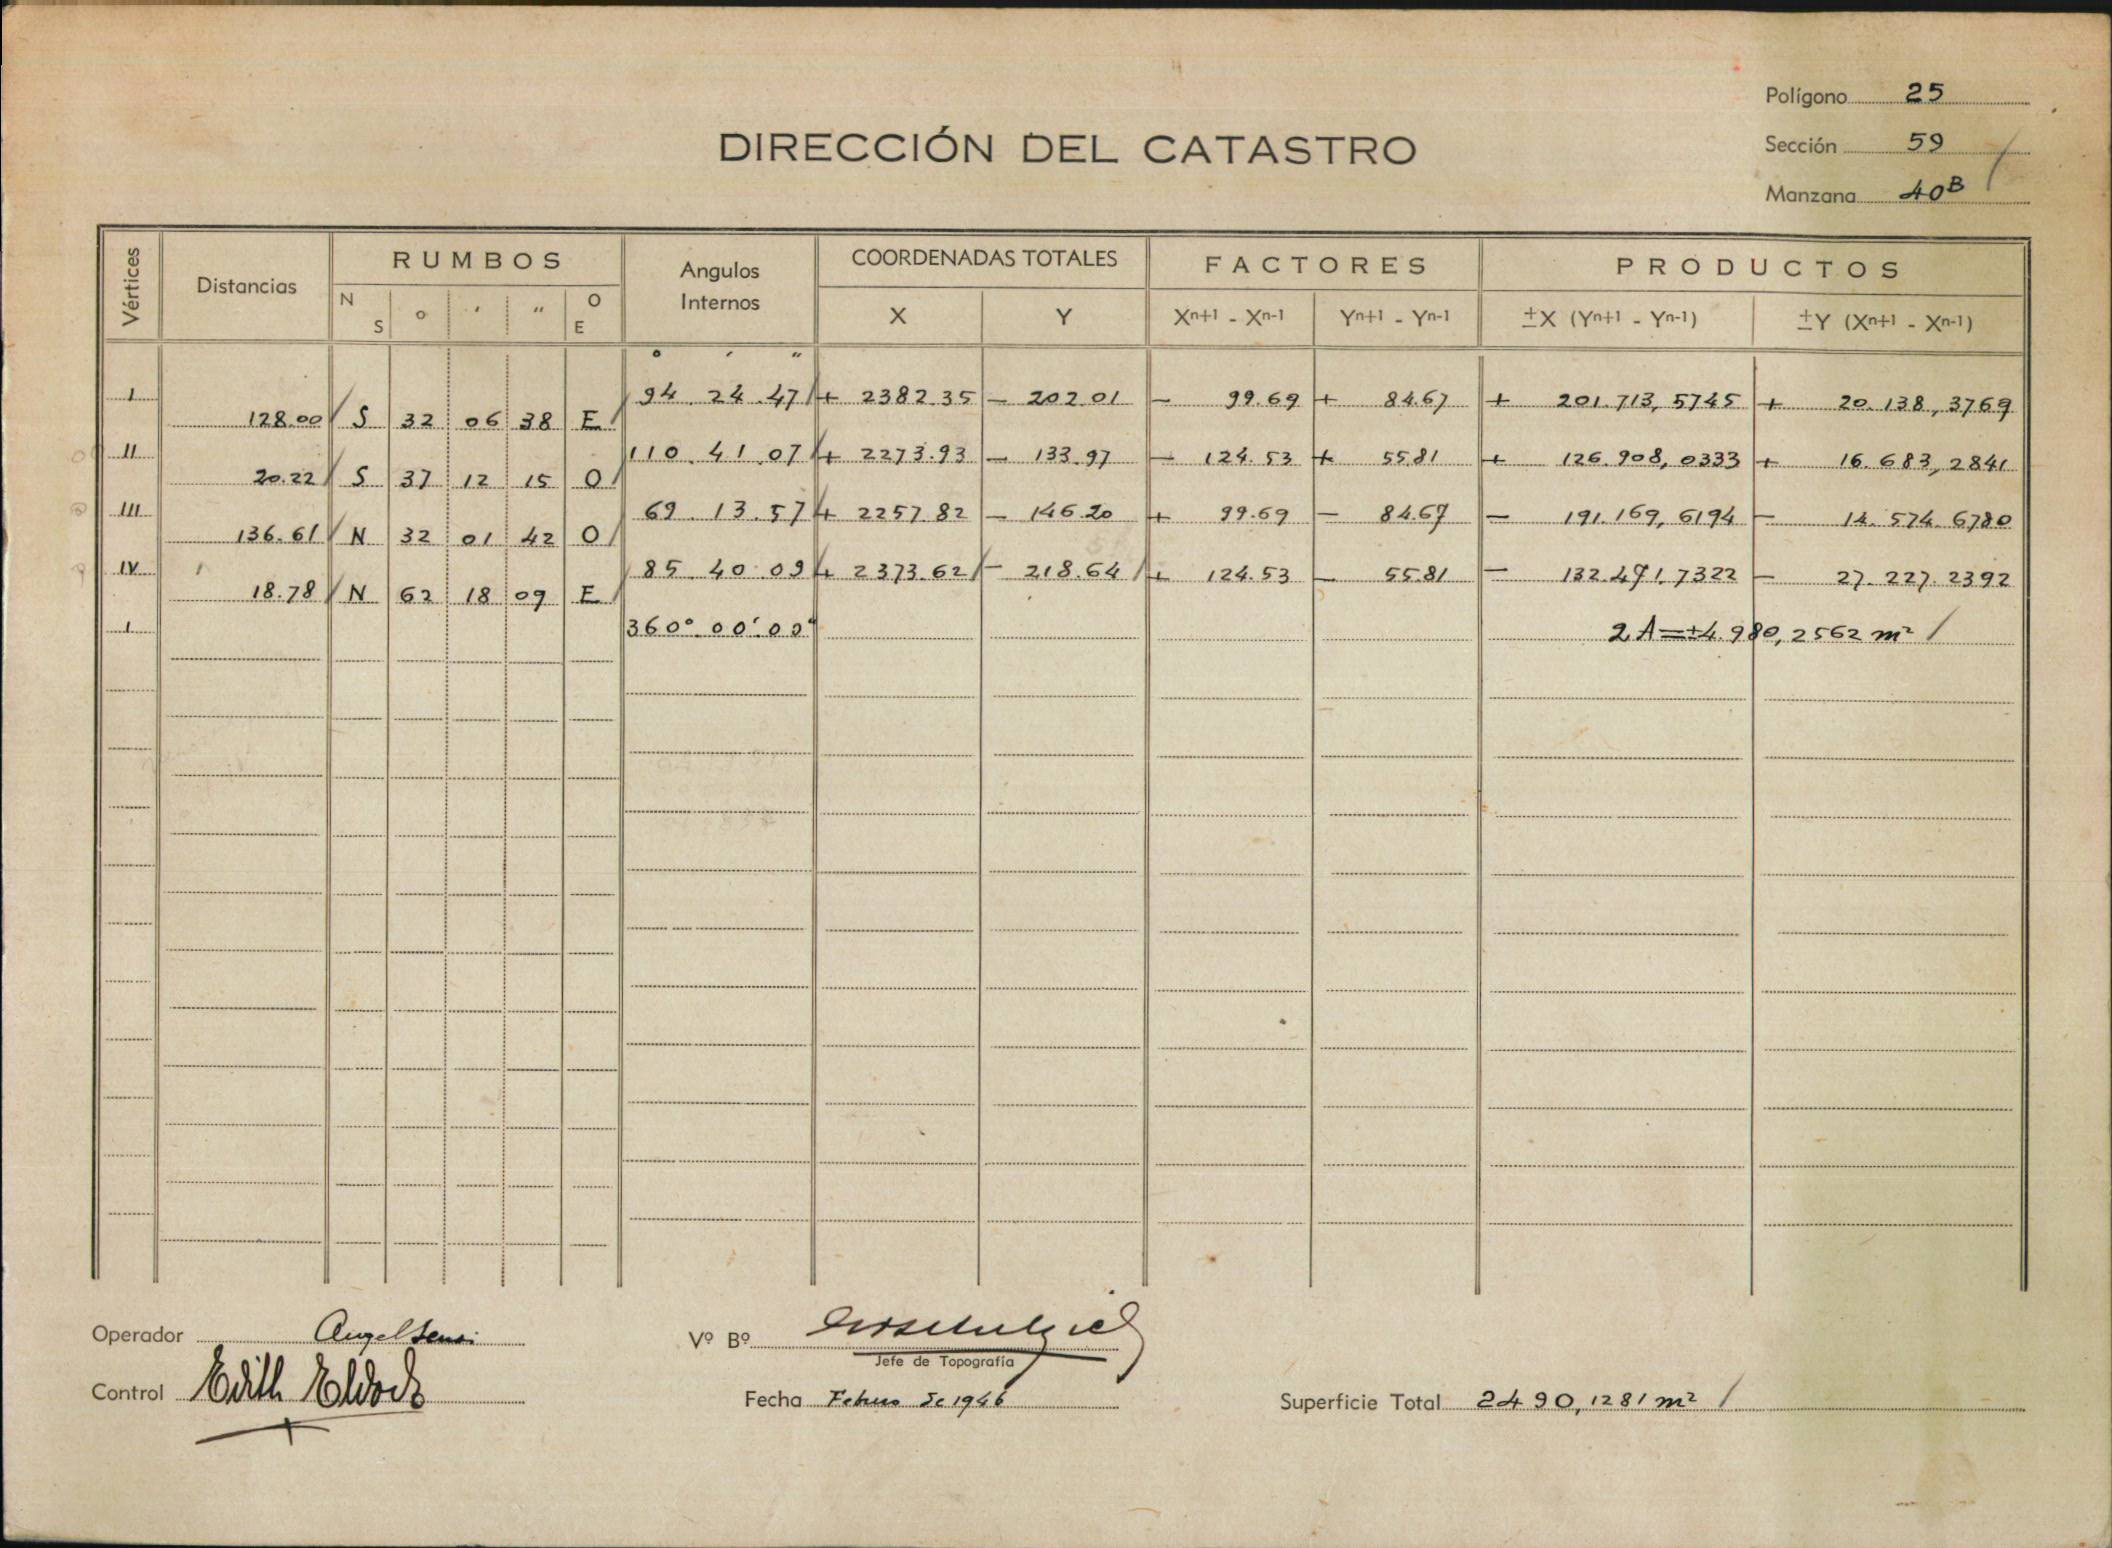 Polígono 25
DIRECCIÓN DEL CATASTRO
Sección 59
Manzana 40B
Vértices Distancias RUMBOS Angulos Internos COORDENADAS TOTALES FACTORES PRODUCTOS
N S o ′ ″ O E X Y Xn+1 - Xn-1 Yn+1 - Yn-1 ±X (Yn+1 - Yn-1) ±Y (Xn+1 - Xn-1)
o ′ ″
I 94 24 47 + 2382.35 - 202.01 - 99.69 + 84.67 + 201.713,5745 + 20.138,3769
128.00 S 32 06 38 E
II 110 41 07 + 2273.93 - 133.97 - 124.53 + 55.81 + 126.908,0333 + 16.683,2841
20.22 S 37 12 15 O
III 69 13 57 + 2257.82 - 146.20 + 99.69 - 84.67 - 191.169,6194 - 14.574.6780
136.61 N 32 01 42 O
IV 85 40 09 + 2373.62 - 218.64 + 124.53 - 55.81 - 132.471,7322 - 27.227.2392
18.78 N 62 18 09 E
I 360° 00′ 00″ 2A=±4.980,2562 m²
Operador Angel
Vº Bº
Jefe de Topografía
Control Edith
Fecha Febrero de 1946
Superficie Total 2490,1281 m²